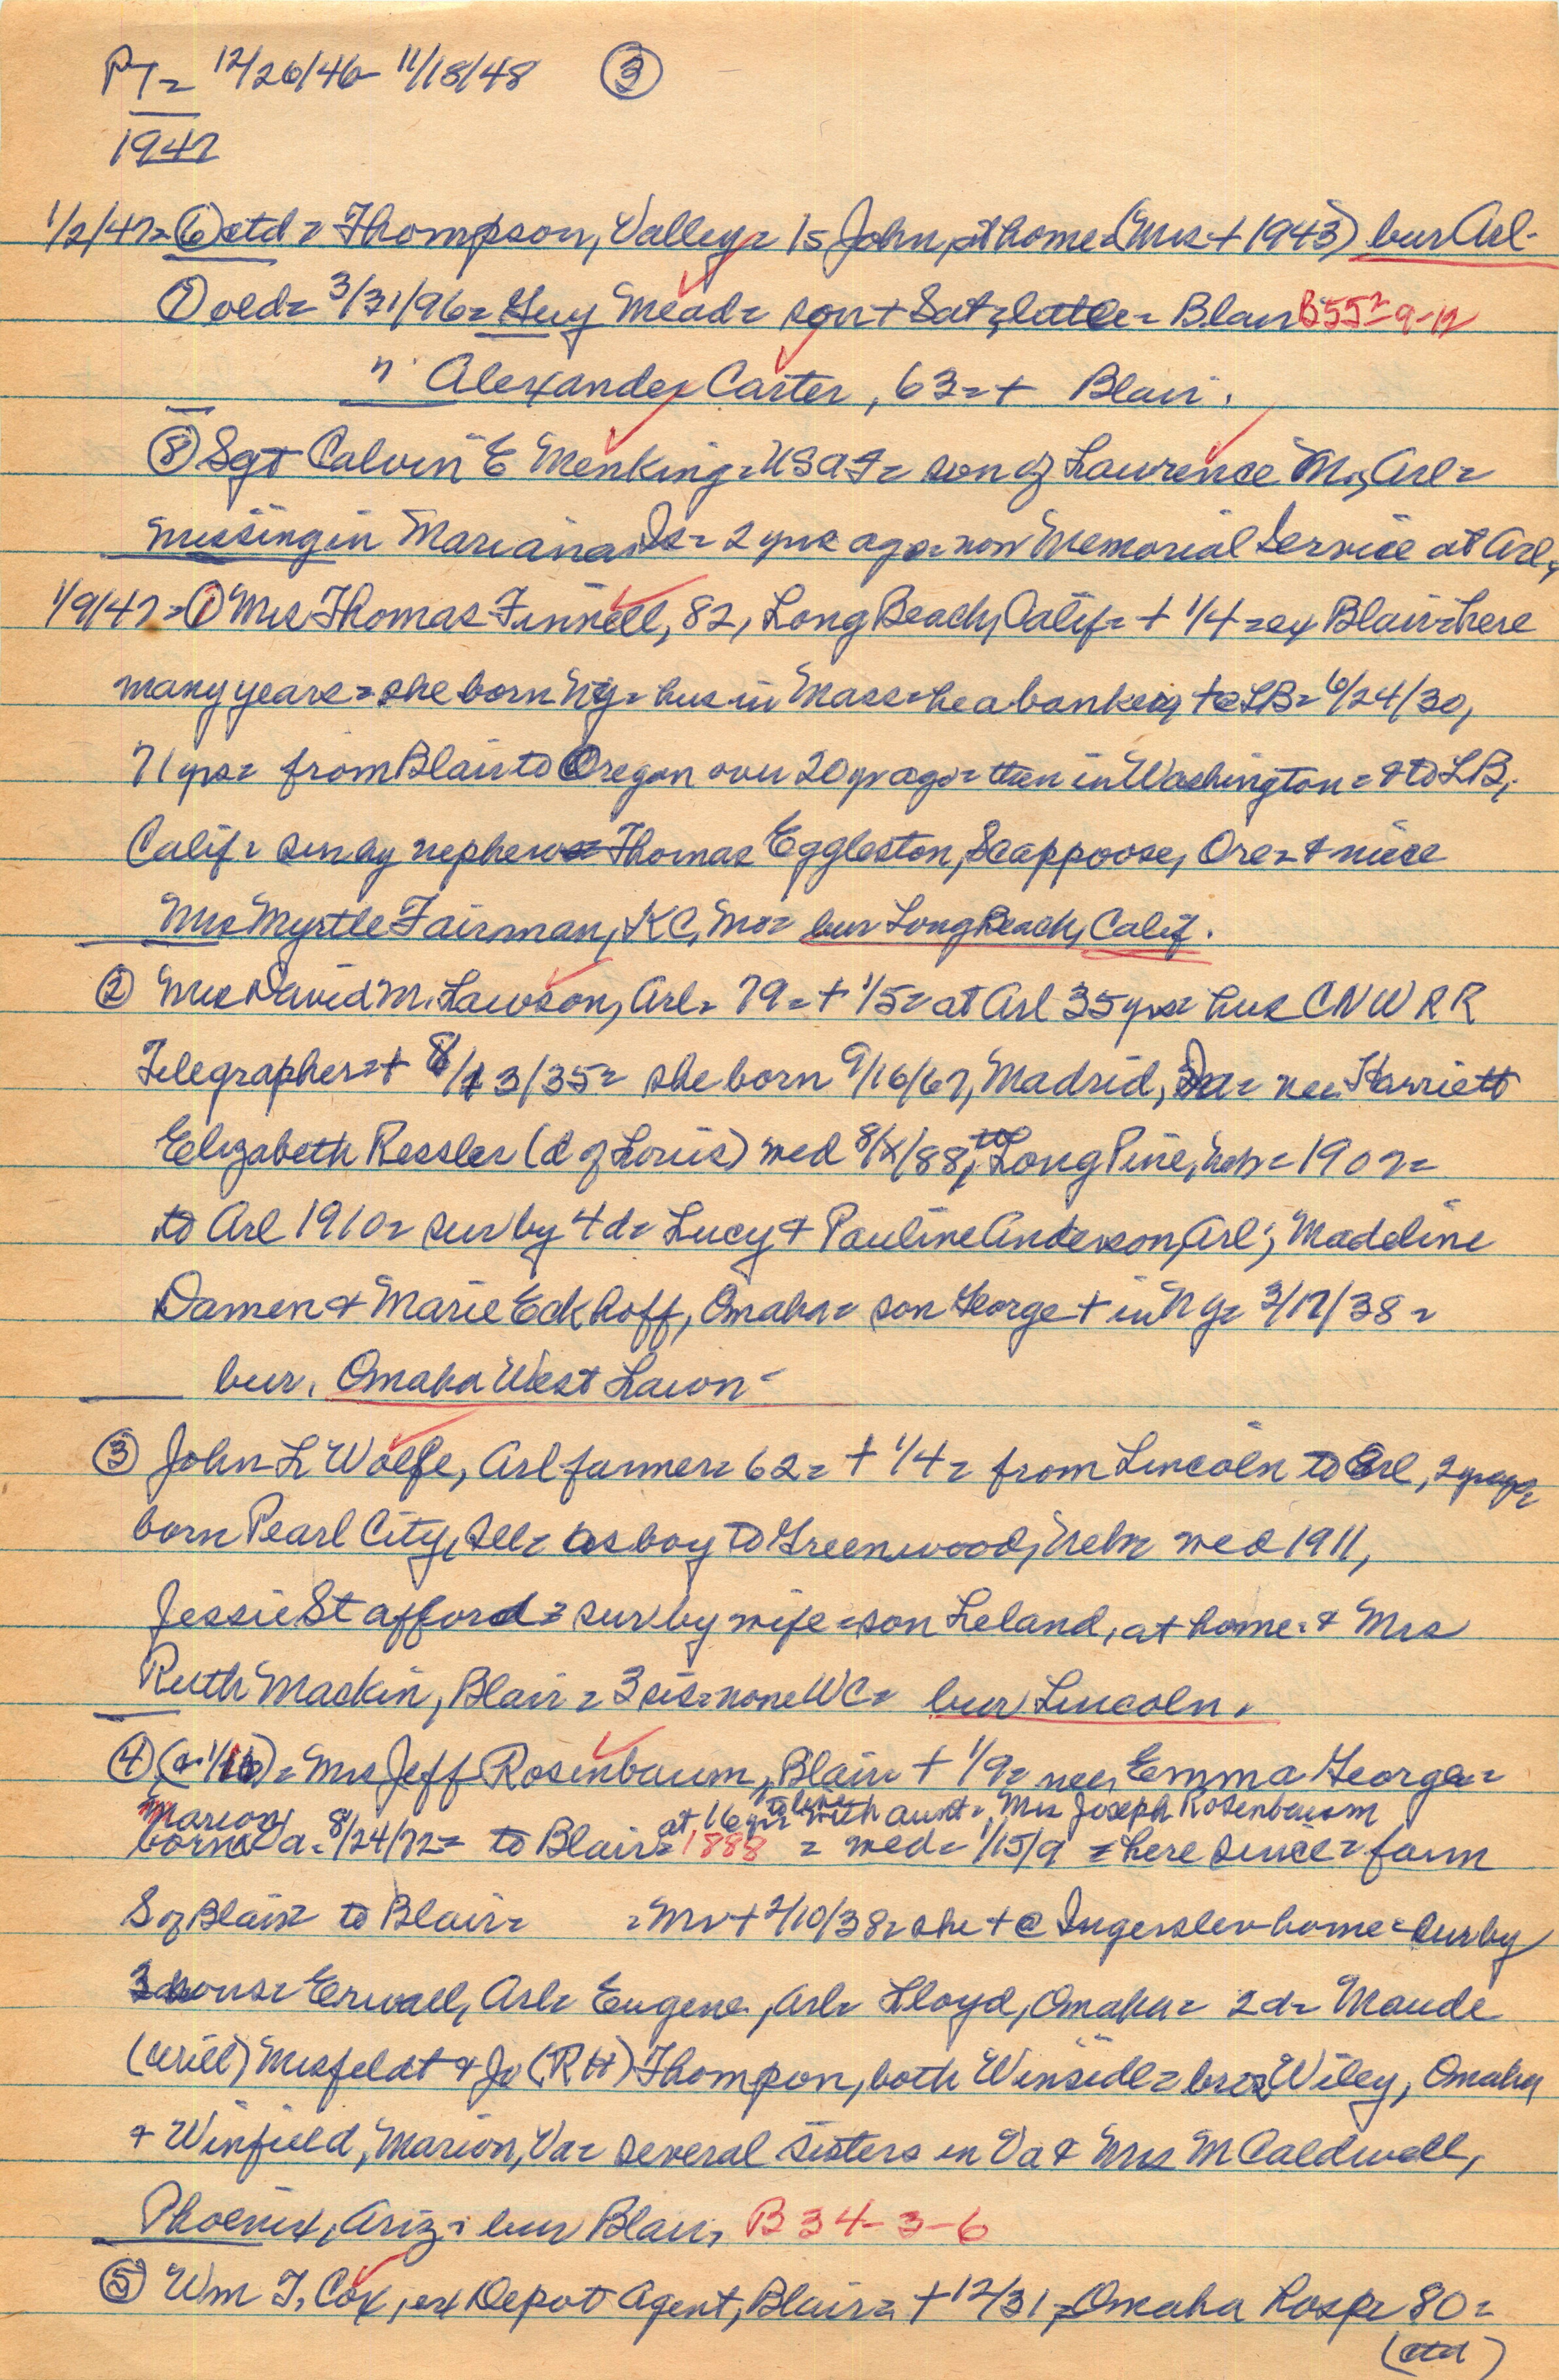 PT= 12/26/46- 11/18/48 ③
1947
1/2/47= ⑥ ctd= Thompson, Valley= 1s John, at home= (Mrs + 1943) bur Arl-
⑦ old= 3/31/96= Guy Mead= son + Sat, = Blair B55=9-12
" Alexander Carter, 63=+ Blair.
⑧ Sgt Calvin E Menking=USAF= son of Lawrence M., Arl=
missing in Mariana Is= 2 yrs ago=now Memorial Service at Arl,
1/9/47=① Mrs Thomas Finnell, 82, Long Beach, Calif= + 1/4=ex Blair=here
many years=she born NY= hus in Mass=he a banker, + @ LB= 6/24/30,
71 yrs= from Blair to Oregon over 20 yr ago= then in Washington= & to LB,
Calif= sur by nephew= Thomas Eggleston, Scappoose, Ore=& niece
Mrs Myrtle Fairman, KC, Mo= bur Long Beach, Calif.
② Mrs David M. Lawson, Arl= 79=+ 1/5= at Arl 35 yrs= hus CNW RR
Telegrapher=+ 8/13/35= she born 9/16/67, Madrid, Ia= nee Harriett
Elizabeth Ressler (d of Louis) wed 8/x/88, to Long Pine, Neb= 1907=
to Arl 1910= sur by 4 d= Lucy & Pauline Anderson, Arl; Madeline
Damen & Marie Eckhoff, Omaha= son George + in NY= 3/17/38=
bur. Omaha West Lawn-
③ John L Wolfe, Arl farmer= 62= + 1/4= from Lincoln to Arl, 2 yr ago=
born Pearl City, Ill= as boy to Greenwood, Neb= wed 1911,
Jessie Stafford= sur by wife=son Leland, at home. & Mrs
Ruth Mackin, Blair= 3 sis=none WC= bur Lincoln.
④ (a. 1/16)= Mrs Jeff Rosenbaum, Blair + 1/9= nee, Emma George=
Marion, at 16 yr= to live with aunt=, Mrs Joseph Rosenbaum
born Va= 8/24/72= to Blair= 1888 = wed= 1/15/9 =here since= farm
S of Blair to Blair= =Mr + 2/10/38= she + @ Ingerslev home=sur by
3 sons= Erwell, Arl= Eugene, Arl= Lloyd, Omaha= 2 d= Maude
(Will) Misfeldt & Jo (RH) Thompson, both Winside= bros Wiley, Omaha
& Winfield, Marion, Va= several sisters in Va & Mrs M Caldwell,
Phoenix, Ariz= bur Blair, B 34-3-6
⑤ Wm T. Cox, ex Depot Agent, Blair=, +12/31, Omaha hosp= 80=
(ctd)